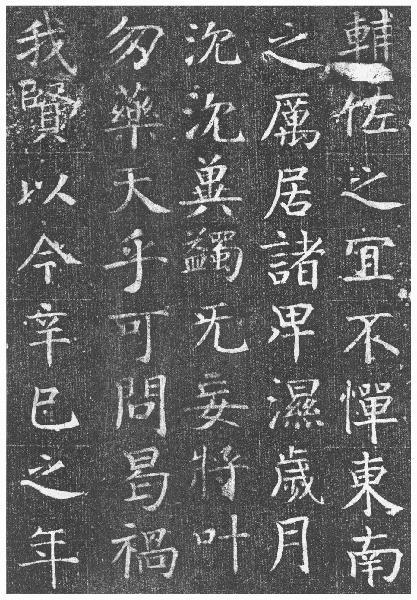 輔佐之宜不憚東南
之厲居諸卑濕歲月
沉沉冀蠲旡妄將叶
勿藥天乎可問曷禍
我賢以今辛巳之年